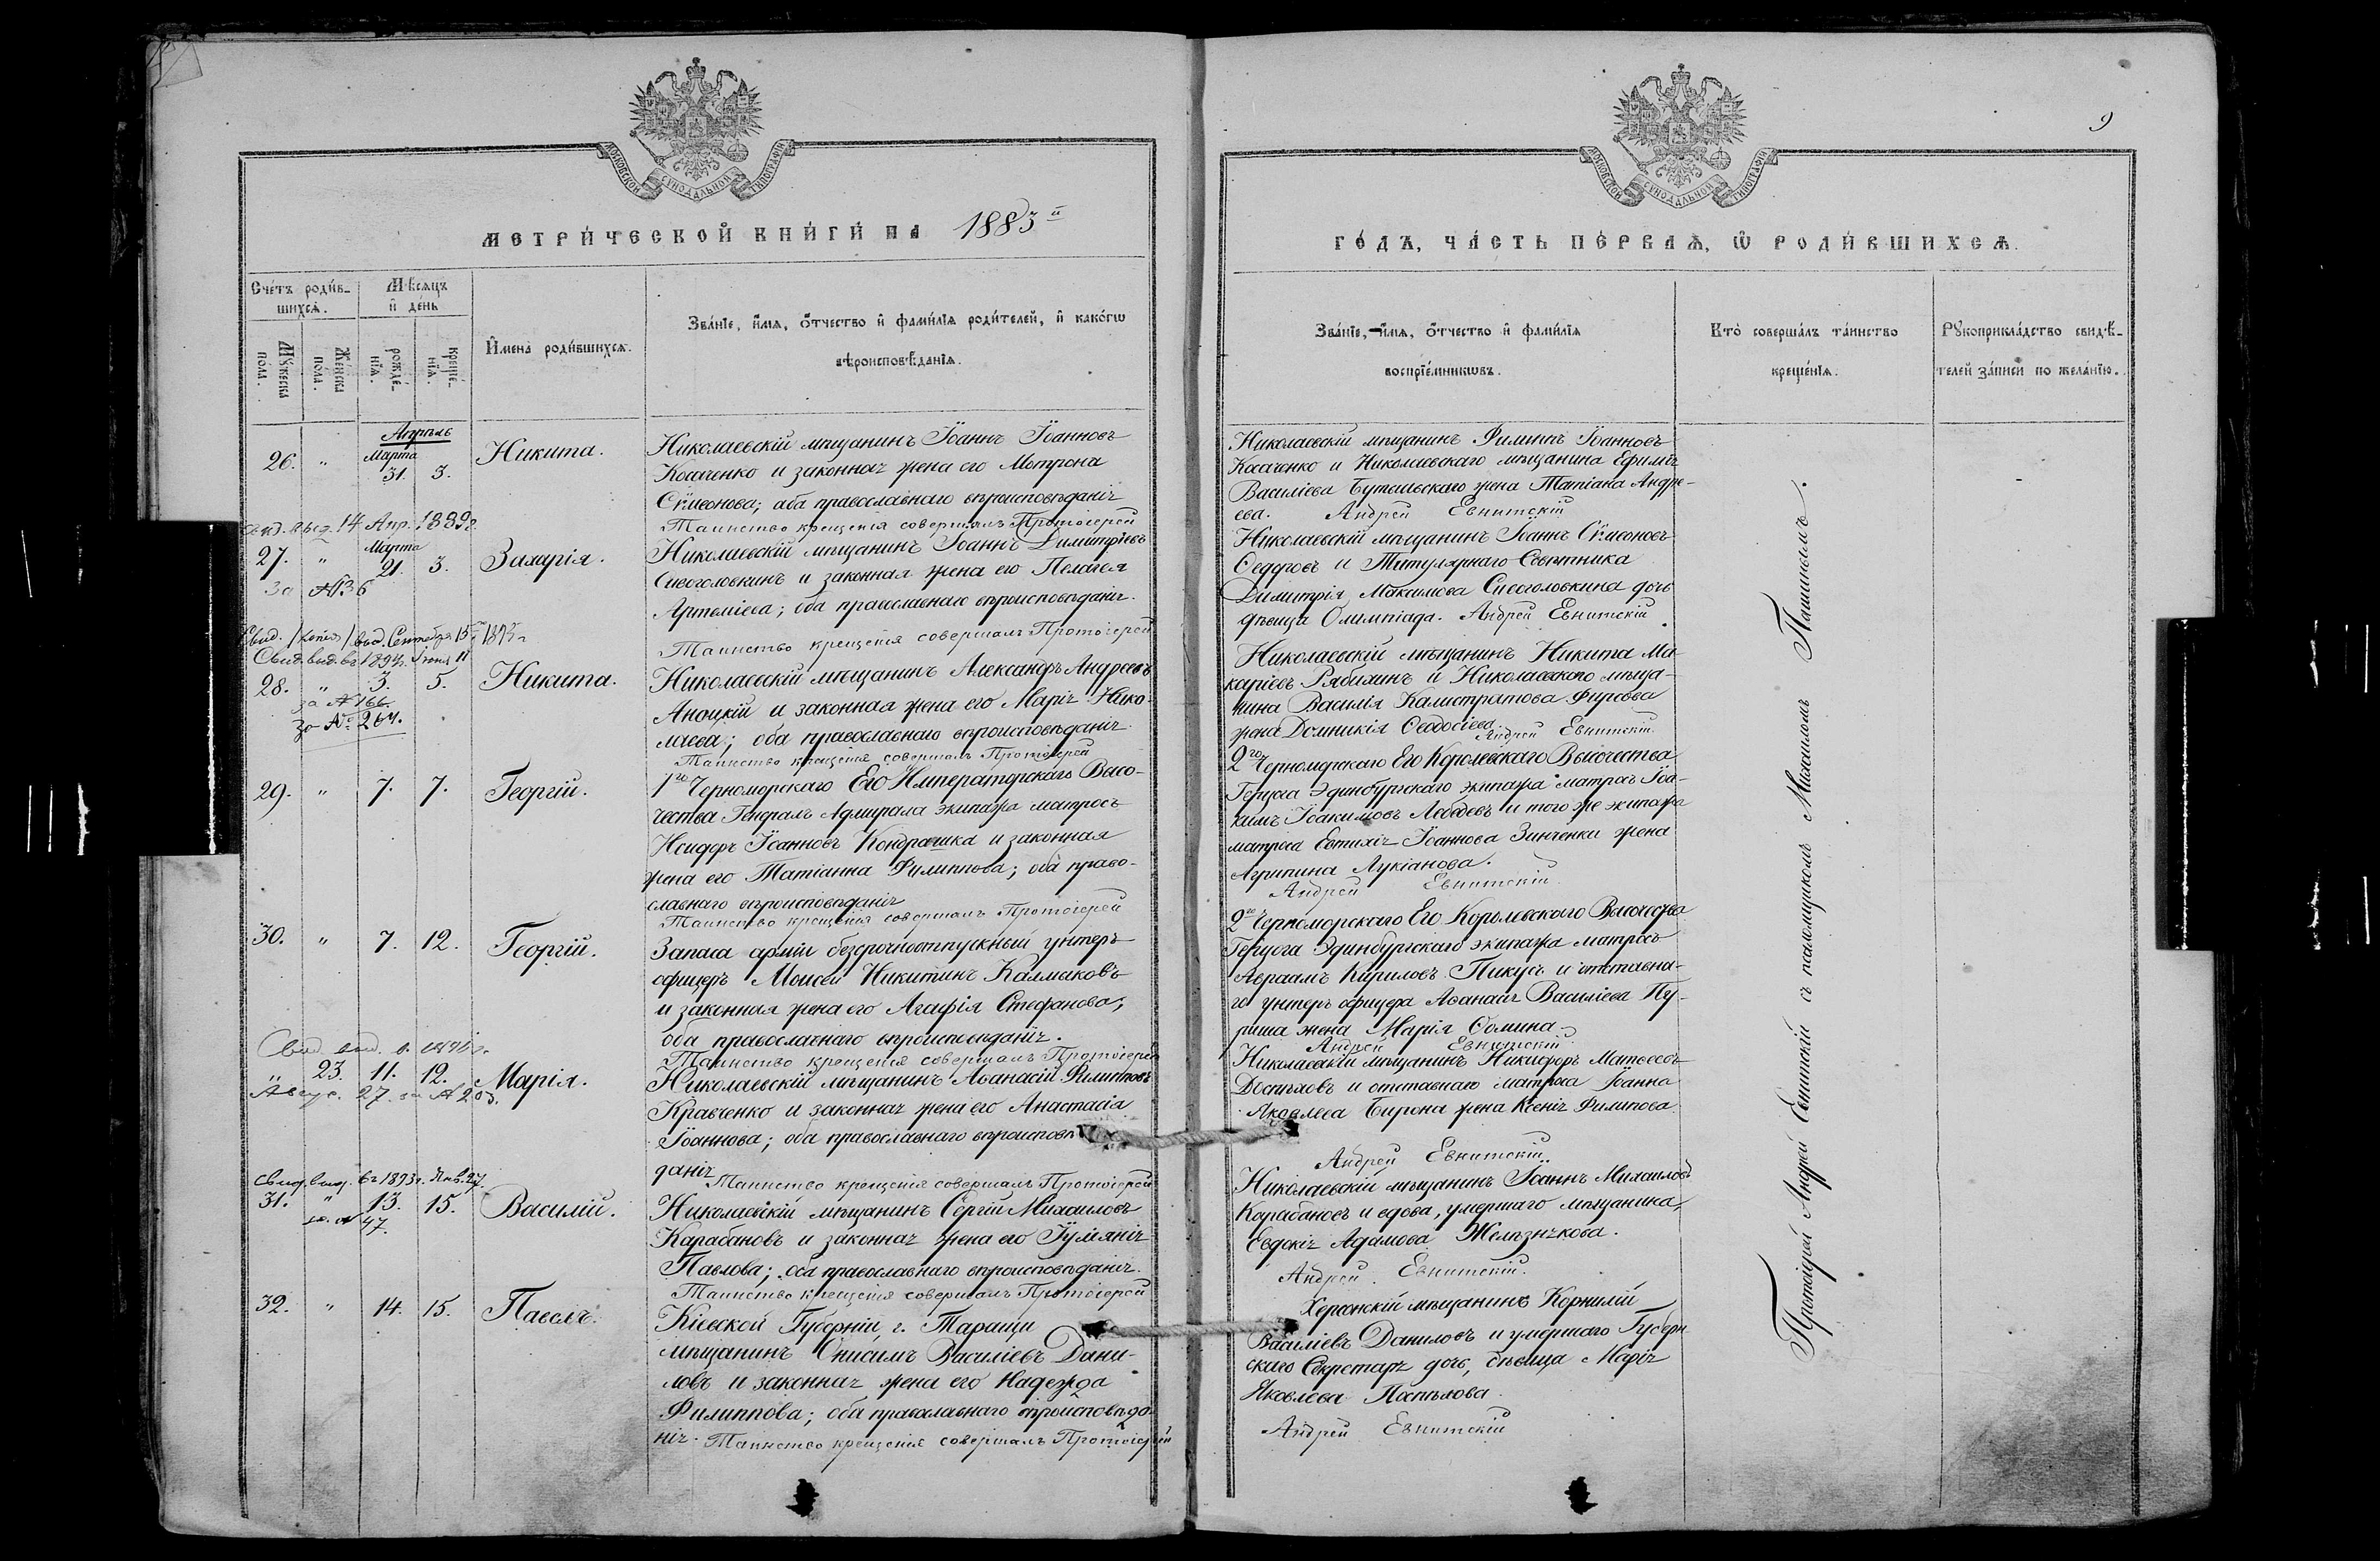 МОСКОВСКОЙ СУНОДАЛЬНОЙ ТИПОГРАФІИ
МЕТРИ́ЧЕСКОЙ КНИ́ГИ НА 1883й
Сче́тъ роди́в-
шихсѧ.
Мѣсѧцъ
и де́нь
Мꙋжеска
пола.
Же́нска
пола.
рожде́-
нїѧ.
креще́-
нїѧ.
И҆мена̀ роди́вшихсѧ.
Зва́нїе, и҆́мѧ, ѻ҆́тчество и҆ фами́лїѧ роди́телей, и҆ како́гѡ
вѣроисповѣ́данїѧ.
Апрѣль
26. " Марта 31. 3. Никита.
Николаевскій мѣщанинъ Іоаннъ Іоанновъ
Косаченко и законная жена его Мотрона
Сѵмеонова; оба православнаго вѣроисповѣданія
Таинство крещенія совершалъ Протоіерей
Свид. выд. 14 Апр. 1889г.
27. " Марта 21. 3. Захарія.
за №36
Николаевскій мѣщанинъ Іоаннъ Димитріевъ
Сиволовкинъ и законная жена его Пелагея
Артеміева; оба православнаго вѣроисповѣданія.
Таинство крещенія совершалъ Протоіерей
Свид. /копія/ выд. Сентября 15
Свид. выд. въ 1894г. Іюня 11
28. " 3. 5. Никита.
за №166.
за №264.
Николаевскій мѣщанинъ Александръ Андреевъ
Аноцкій и законная жена его Марія Нико-
лаева; оба православнаго вѣроисповѣданія
Таинство крещенія совершалъ Протоіерей
29. " 7. 7. Георгій.
1го Черноморскаго Его Императорскаго Высо-
чества Генералъ Адмирала экипажа матросъ
Исидоръ Іоанновъ Кондрашка и законная
жена его Татіанна Филиппова; оба право-
славнаго вѣроисповѣданія
Таинство крещенія совершалъ Протоіерей
30. " 7. 12. Георгій.
Запаса арміи безсрочноотпускный унтеръ
офицеръ Моисей Никитинъ Калмыковъ
и законная жена его Агафія Стефанова;
оба православнаго вѣроисповѣданія.
Таинство крещенія совершалъ Протоіерей
Свид. выд. в.
" 23. 11. 12. Марія.
Авгус. 27. за № 203.
Николаевскій мѣщанинъ Аѳанасій Филипповъ
Кравченко и законная жена его Анастасія
Іоаннова; оба православнаго вѣроисповѣ
данія
Таинство крещенія совершалъ Протоіерей
Свид. выд. въ 1893г. Янв. 27.
31. " 13. 15. Василій.
за № 47.
Николаевскій мѣщанинъ Сергій Михаиловъ
Карабановъ и законная жена его Іуліянія
Павлова; оба православнаго вѣроисповѣданія.
Таинство крещенія совершалъ Протоіерей
32. " 14. 15. Павелъ.
Кіевской Губерніи, г. Таращи
мѣщанинъ Онисимъ Василіевъ Дани-
ловъ и законная жена его Надежда
Филиппова; оба православнаго вѣроисповѣда-
нія. Таинство крещенія совершалъ Протоіерей
9
МОСКОВСКОЙ СУНОДАЛЬНОЙ ТИПОГРАФІИ
ГО́ДЪ, ЧА́СТЬ ПЕ́РВАѦ, Ѡ҆ РОДИ́ВШИХСѦ.
Зва́нїе, и҆́мѧ, ѻ҆́тчество и҆ фами́лїѧ
воспрїе́мникѡвъ.
Кто̀ соверша́лъ та́инство
креще́нїѧ.
Рꙋкоприкла́дство свидѣ́-
телей за́писи по жела́нїю.
Николаевскій мѣщанинъ Филиппъ Іоанновъ
Касаченко и Николаевскаго мѣщанина Ефимія
Василіева Бутыльскаго жена Татіана Андре-
ева. Андрей Евнитскій
Николаевскій мѣщанинъ Іоаннъ Сѵмеоновъ
Ѳедоровъ и Титулярнаго Совѣтника
Димитрія Максимова Сиволовкина дочь
дѣвица Олимпіада. Андрей Евнитскій
Николаевскій мѣщанинъ Никита Ма-
каріевъ Рябихинъ и Николаевскаго мѣща-
нина Василія Калистратова Фирсова
жена Домникія Ѳеодосіева.
Андрей Евнитскій.
2го Черноморскаго Его Королевскаго Высочества
Герцога Эдинбургскаго экипажа матросъ Іоа-
кимъ Іоакимовъ Лебедевъ и того же экипажа
матроса Евтихія Іоаннова Зинченки жена
Агрипина Лукіанова.
Андрей Евнитскій.
2го Черноморскаго Его Королевскаго Высочества
Герцога Эдинбургскаго экипажа матросъ
Авраамъ Кириловъ Пикусъ и отставна-
го унтеръ офицера Аѳанасія Василіева Пу-
риша жена Марія Ѳомина.
Андрей Евнитскій
Николаевскій мѣщанинъ Никифоръ Матвеевъ
Доспѣховъ и отставнаго матроса Іоанна
Яковлева Бирона жена Ксенія Филипова.
Андрей Евнитскій.
Николаевскій мѣщанинъ Іоаннъ Михаиловъ
Карабановъ и вдова, умершаго мѣщанина,
Евдокія Адамова Желѣзнчкова.
Андрей Евнитскій.
Херсонскій мѣщанинъ Корнилій
Василіевъ Даниловъ и умершаго Губерн
скаго Секретаря дочь, дѣвица Марія
Яковлева Поспѣлова.
Андрей Евнитскій
Протоіерей Андрей Евнитскій съ псаломщикомъ Михаиломъ